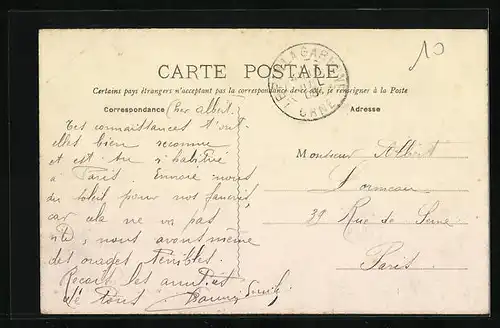 10
CARTE POSTALE
Certains pays étrangers n'acceptant pas la correspondance de ce côté, se renseigner à la Poste
Correspondance
Adresse
Cher Albert.
Tes connaissances t'ont
elles bien reconnu
et est-tu habitué
à Paris. Envoie nous
du soleil pour nos
car cela ne va pas
vite, nous avons même
des orages terribles.
Reçois les amitiés
de tous
Monsieur Albert
Lormeau
Rue de Seine
Paris.
ORNE